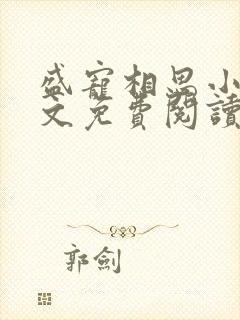 盛寵相思小
文免費閱讀
郭劍